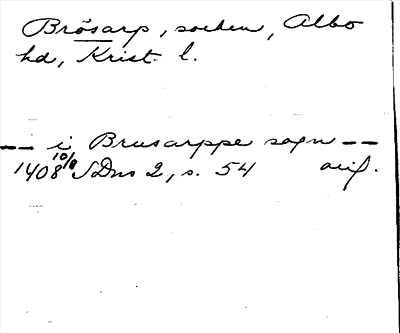 Brösarp, socken, Albo
hd, Krist. l.
-- i Brusarppe sogn --
1408 10/8 SDns 2, s. 54 orig.